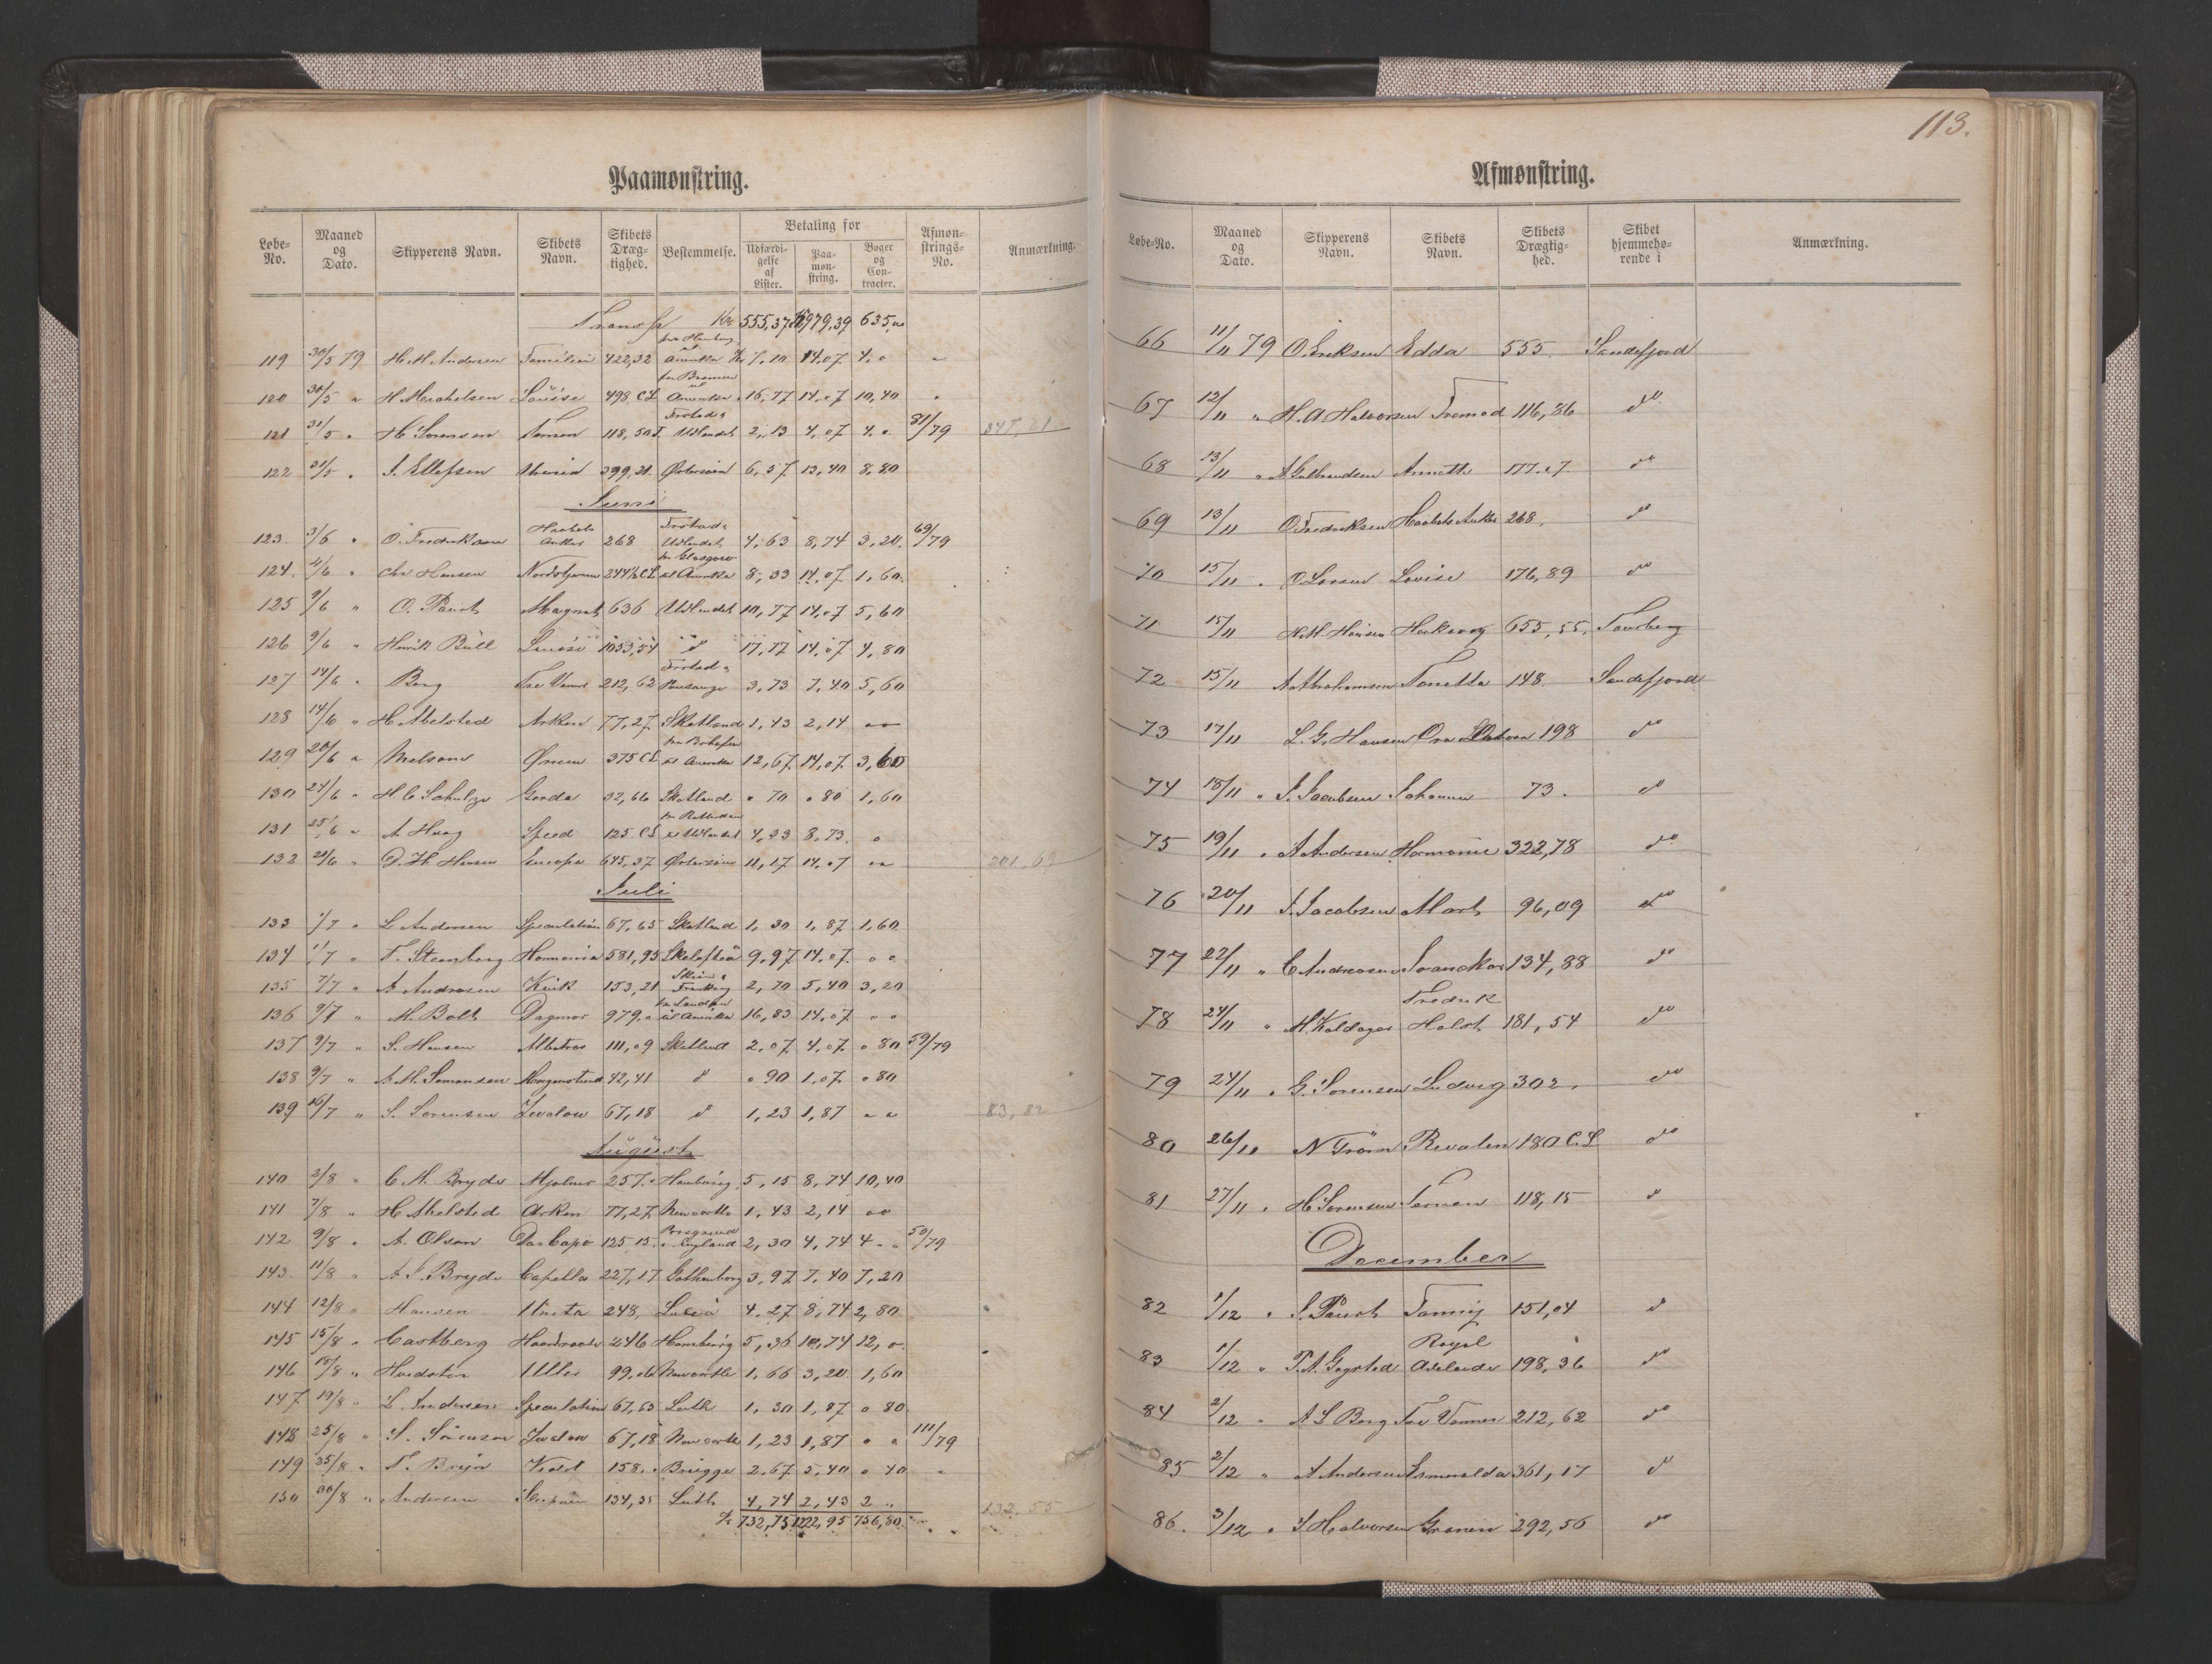 Paamønstring.
Løbe-No. Maaned og Dato. Skipperens Navn. Skibets Navn. Skibets Drægtighed. Bestemmelse. Betaling for Udfærdigelse af Lister. Paamønstring. Bøger og Contracter. Afmønstrings-No. Anmærkning.
Transp Kr 555,37 979,39 635,
119 30/5 79 H. M. Andersen Familien 422,32 fra Hamburg til Amerika 7,10 14,07 4,0
120 30/5 " H Michelsen Louise 498 CL fra Bremen til Amerika 16,77 14,07 10,40
121 31/5 " H Sørensen Ternen 118,50 Udlandet 2,13 4,07 4. 81/79 347,21
122 31/5 " J. Ellefsen 399,21 Østersøen 6,57 13,40 8,80
Juni
123. 3/6 " O. Fredriksen Haabets Anker 268 Udlandet 4,63 8,74 3,20. 69/79
124. 4/6 " Chr Hansen Nordstjernen 244½ CL fra Glasgow til Amerika 8,33 14,07 1,60.
125 9/6 " O. Paust Magnet 636 Udlandet 10,77 14,07 5,60
126 9/6 " Henrik Bull Louise 1053,54 do 17,77 14,07 4,80
127 14/6 " Berg Tre Venner 212,62 3,73 7,40 5,60
128 14/6 " H Abelsted Arken 77,27 Skotland 1,43 2,14 "
129 20/6 " Melsom Ørnen 375 CL til Amerika 12,67 14,07 3,60
130 24/6 " H C Schultze Gerda 32,66 Skotland " 70 " 80 1,60
131 25/6 " A Haag Speed 125 CL fra Rotterdam til Udlandet 4,33 8,73. "
132 28/6 " D. H. Hansen Europa 645,37 Østersøen 11,17 14,07 " 201,69
Juli
133 1/7 " L Andersen Speculation 67,65 Skotland 1,30 1,87 1,60
134 1/7 " F. Steenberg Harmonia 581,95 Skelefteå 9,97 14,07. " "
135 7/7 " A Andresen Kvik 153,21 2,70 5,40 3,20
136 9/7 " M. Bolt Dagmar 979." fra London til Amerika 16,83 14,07 " "
137 9/7 " S. Hansen Albatros 111,09 Skotland 2,07 4,07 " 80 59/79
138 9/7 " A. M. Simonsen Morgenstund 42,41 do " 90 1,07. " 80
139 16/7 " S. Sørensen Svalow 67,18 do 1,23 1,87 " " 83,82
August
140 2/8 " C A. Bryde Mjølner 257. " Hamburg 5,15 8,74 10,40
141 7/8 " H. Abelsted Arken 77,27. Newcastle 1,43 2,14 "
142 9/8 " A. Olsen Da Capo 125 15. Porsgrund England 2,30 4,74 4 - " 50/79
143. 11/8 " A. J. Bryde Capella 227,17 Gothenborg 3,97 7,40 7,20
144 12/8 " Hansen 248, Luleå 4.27 8,74 2,80
145 15/8 " Castberg Haardraade 246 Hamburg 5,36 10,74 12,0
146 18/8 " Hvidsten Uller 99,06 Newcastle 1,66 3,20 1,60
147 19/8 " L Andersen Speculation 67,65 Leith 1,30 1,87 " 80.
148 25/8 " S. Sörensen Svalow 67,18 Newcastle 1,23 1,87 " " 111/79
149 25/8 " F. Bryn 158." Brügge 2.67 5,40 " 40 "
150 30/8 " Andersen 134,35 Leith 4,74 2,43 2 " 132,55
732,75 1222,95 756,80
113.
Afmønstring.
Løbe-No. Maaned og Dato. Skipperens Navn. Skibets Navn. Skibets Drægtighed. Skibet hjemmehørende i Anmærkning.
66 11/11 79 O. Eriksen Edda 555. Sandefjord
67 12/11 " H. A Halvorsen Fremad 116,86 do
68 13/11 " A Gulbrandsen Annette 177.27. do
69 13/11 O. Fredriksen Haabets Anker 268. do
70 15/11 " O. Larsen Lovise 176,89 do
71 15/11 H. M. Hansen 655,55. Tønsberg
72 15/11 A Abrahamsen Tonetta 148. Sandefjord
73 17/11 L. G. Hansen 198 do
74 18/11 " J. Jacobsen Johanna 73. do
75 19/11 " A Andersen Harmonie 322,78 do
76 20/11 J. Jacobsen Mart 96,09 do
77 22/11 " C Andreasen 134,88 do
78 24/11 " M. Kaldager Fredrik Holst 181,54 do
79 24/11 " G. Sørensen Ludvig 302. do
80 26/11 N Trönn Rivalen 180 C.L do
81 27/11 " H Sørensen Ternen 118,15 do
December
82 1/12 " J. Paust Fanny 151,04 do
83 1/12 " T. A. Gogstad Royal Adelaide 198,36 do
84 2/12 " A S Berg Tre Venner 212,62 do
85 2/12 " A Andersen Esmeralda 361,17 do
86. 3/12 " J Halvorsen Granen 292,56 do